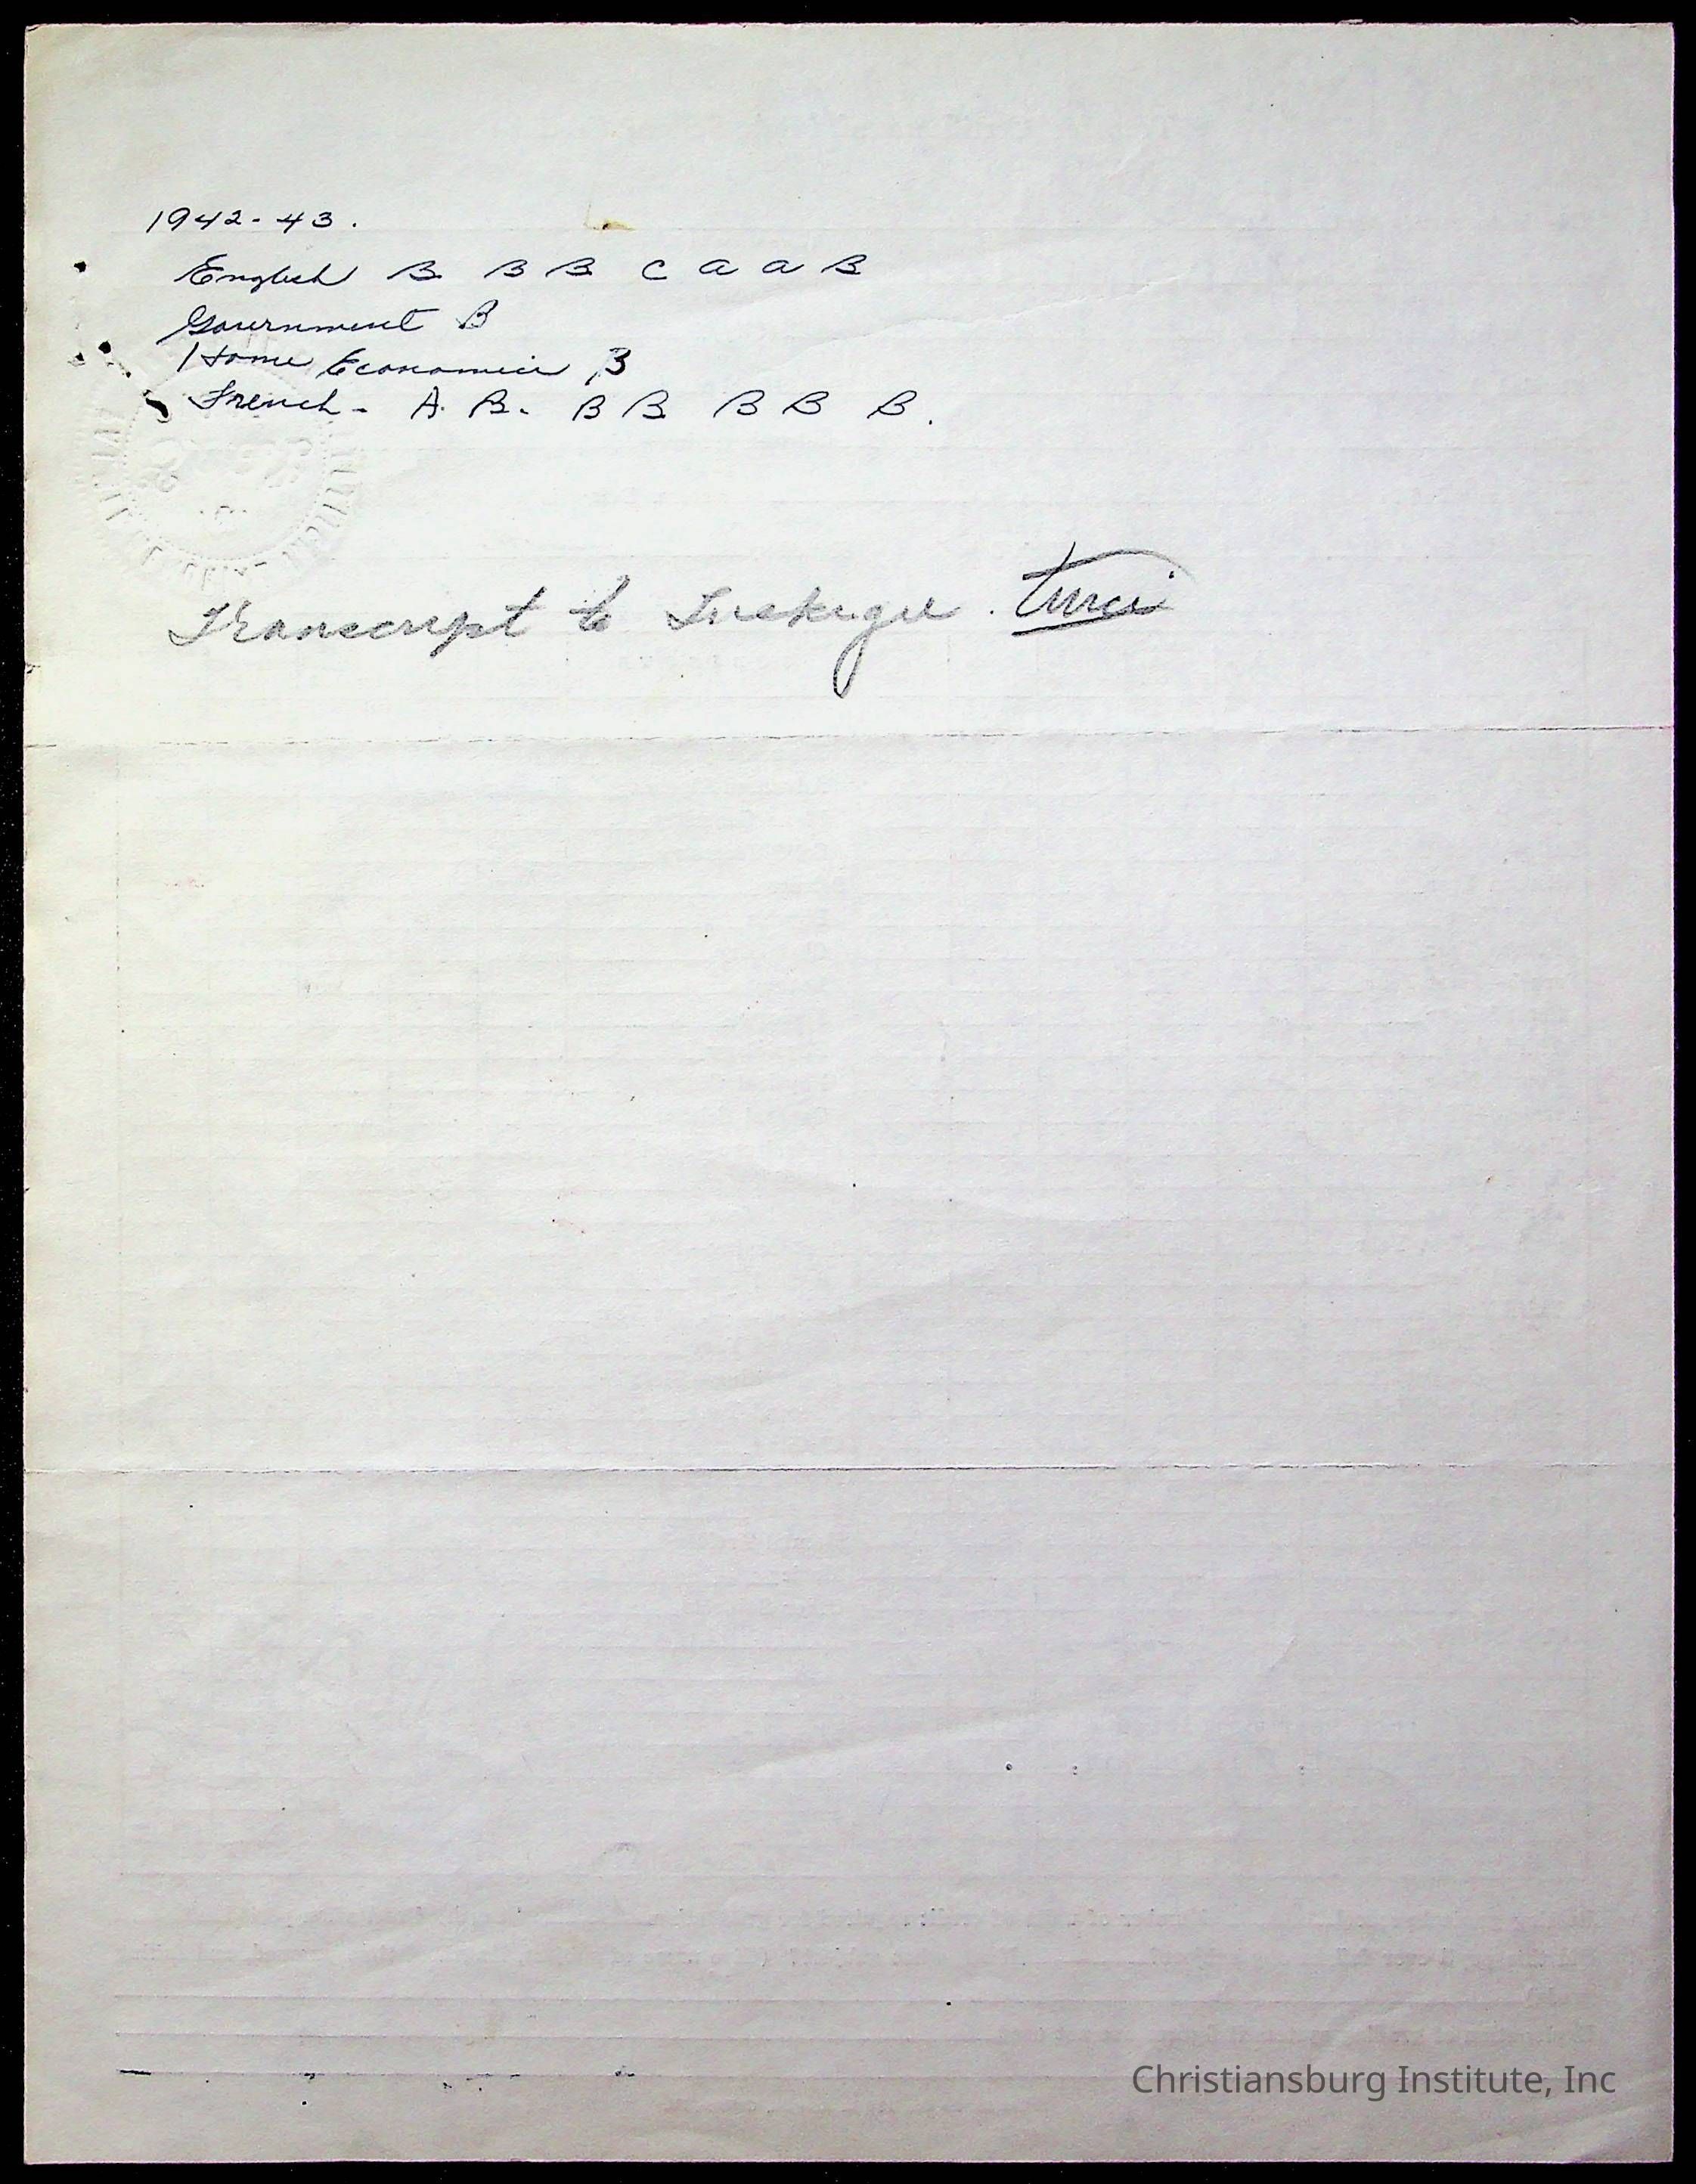 1942-43.
English B B B C a a B
Government B
Home Economics B
French - A B. B B B B B.
Transcript to Tuskegee. twice
Christiansburg Institute, Inc